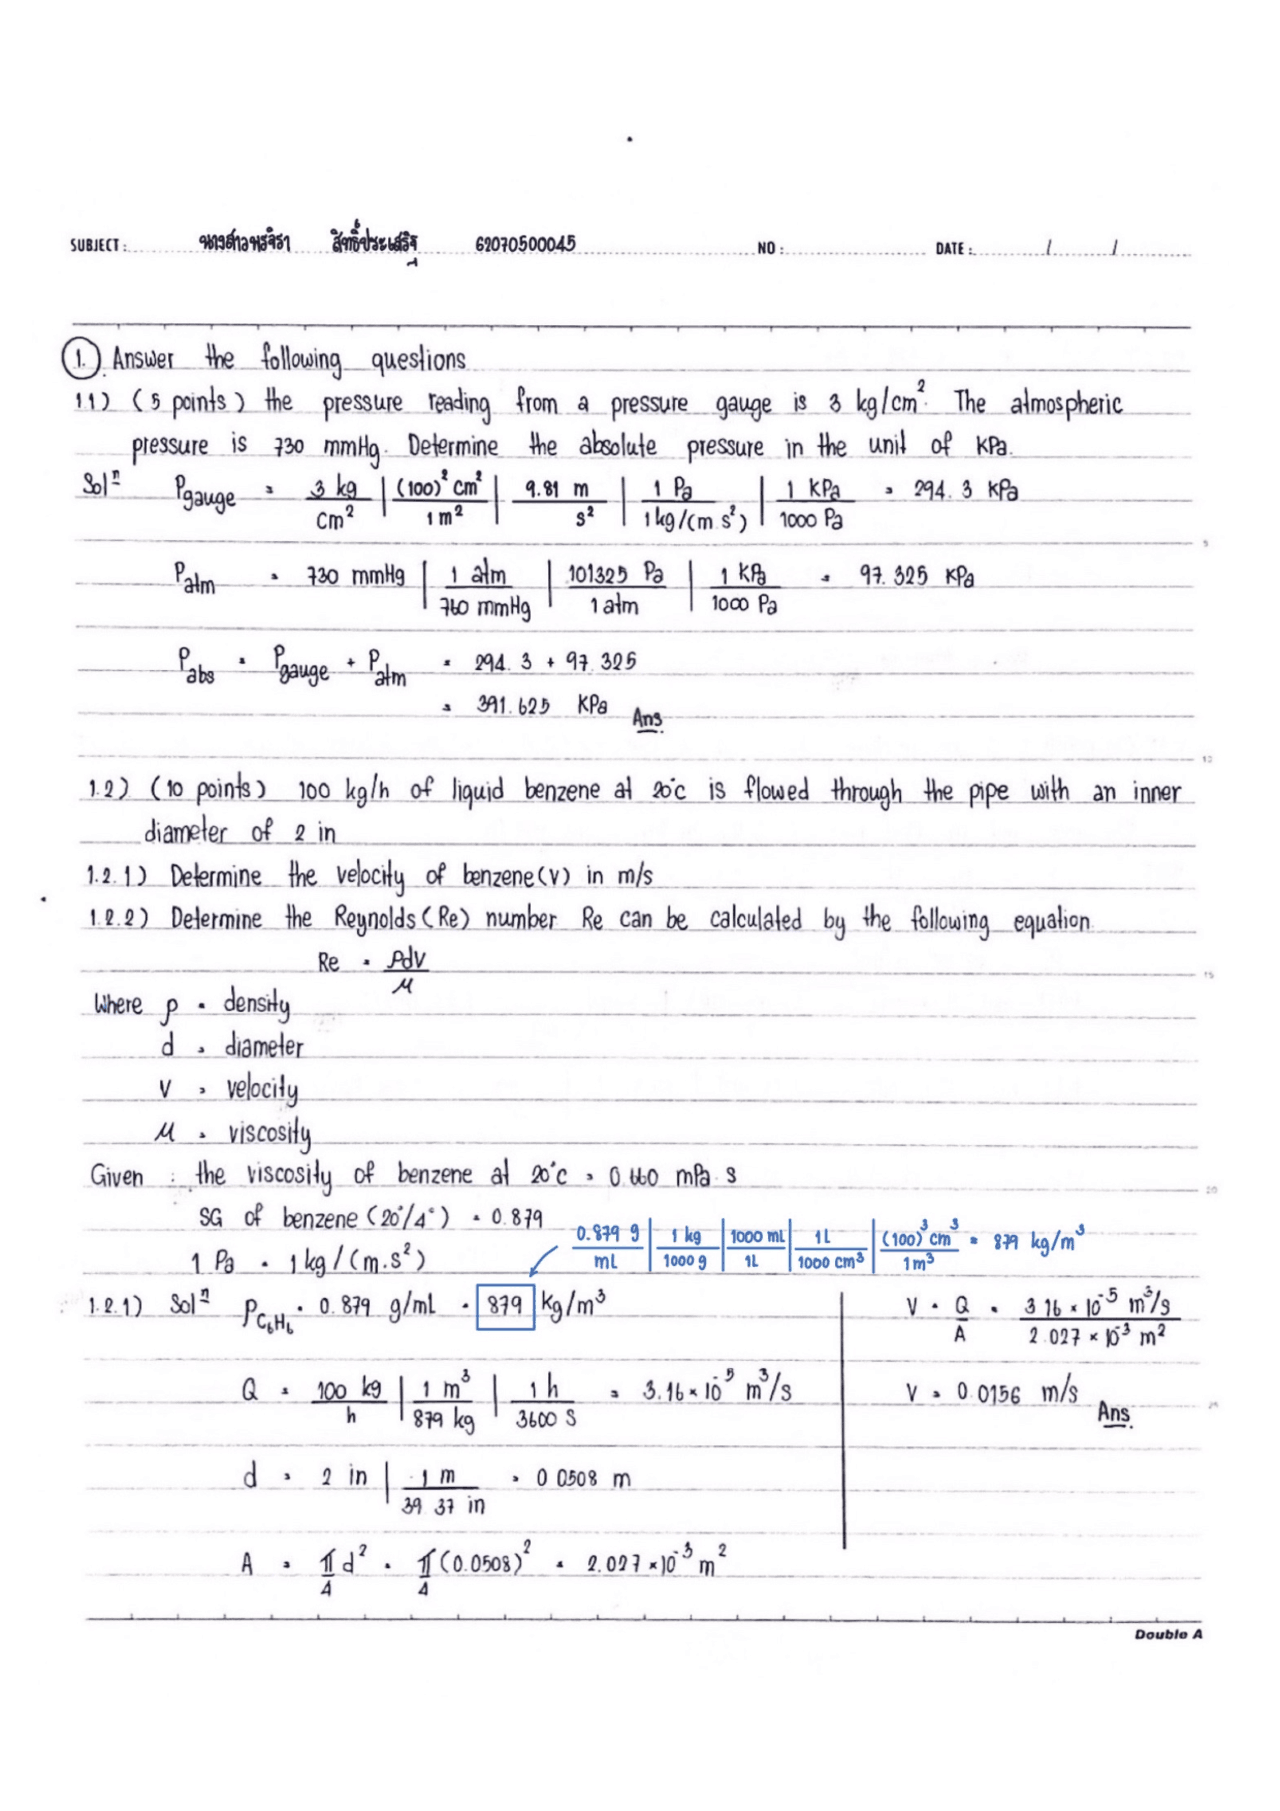 SUBJECT : นางสาวพรจิรา สิทธิ์ประเสริฐ 62070500045 NO : DATE : / /
1. Answer the following questions
1.1) (5 points) the pressure reading from a pressure gauge is 3 kg/cm². The atmospheric
pressure is 730 mmHg. Determine the absolute pressure in the unit of KPa.
Solⁿ P gauge = 3 kg/cm² | (100)² cm²/1 m² | 9.81 m/s² | 1 Pa/1 kg/(m.s²) | 1 KPa/1000 Pa = 294.3 KPa
P atm = 730 mmHg | 1 atm/760 mmHg | 101325 Pa/1 atm | 1 KPa/1000 Pa = 97.325 KPa
P abs = P gauge + P atm = 294.3 + 97.325
= 391.625 KPa Ans.
1.2) (10 points) 100 kg/h of liquid benzene at 20°c is flowed through the pipe with an inner
diameter of 2 in
1.2.1) Determine the velocity of benzene (v) in m/s
1.2.2) Determine the Reynolds (Re) number Re can be calculated by the following equation.
Re = ρdv/μ
Where ρ = density
d = diameter
v = velocity
μ = viscosity
Given : the viscosity of benzene at 20°c = 0.660 mPa.s
SG of benzene (20°/4°) = 0.879
0.879 g/mL | 1 kg/1000 g | 1000 mL/1L | 1L/1000 cm³ | (100)³ cm³/1 m³ = 879 kg/m³
1 Pa = 1 kg/(m.s²)
1.2.1) Solⁿ ρ C₆H₆ = 0.879 g/mL = 879 Kg/m³
Q = 100 kg/h | 1 m³/879 kg | 1 h/3600 S = 3.16 × 10⁻⁵ m³/s
d = 2 in | 1 m/39.37 in = 0.0508 m
A = π/4 d² = π/4 (0.0508)² = 2.027 × 10⁻³ m²
V = Q/A = 3.16 × 10⁻⁵ m³/s / 2.027 × 10⁻³ m²
V = 0.0156 m/s Ans.
Double A